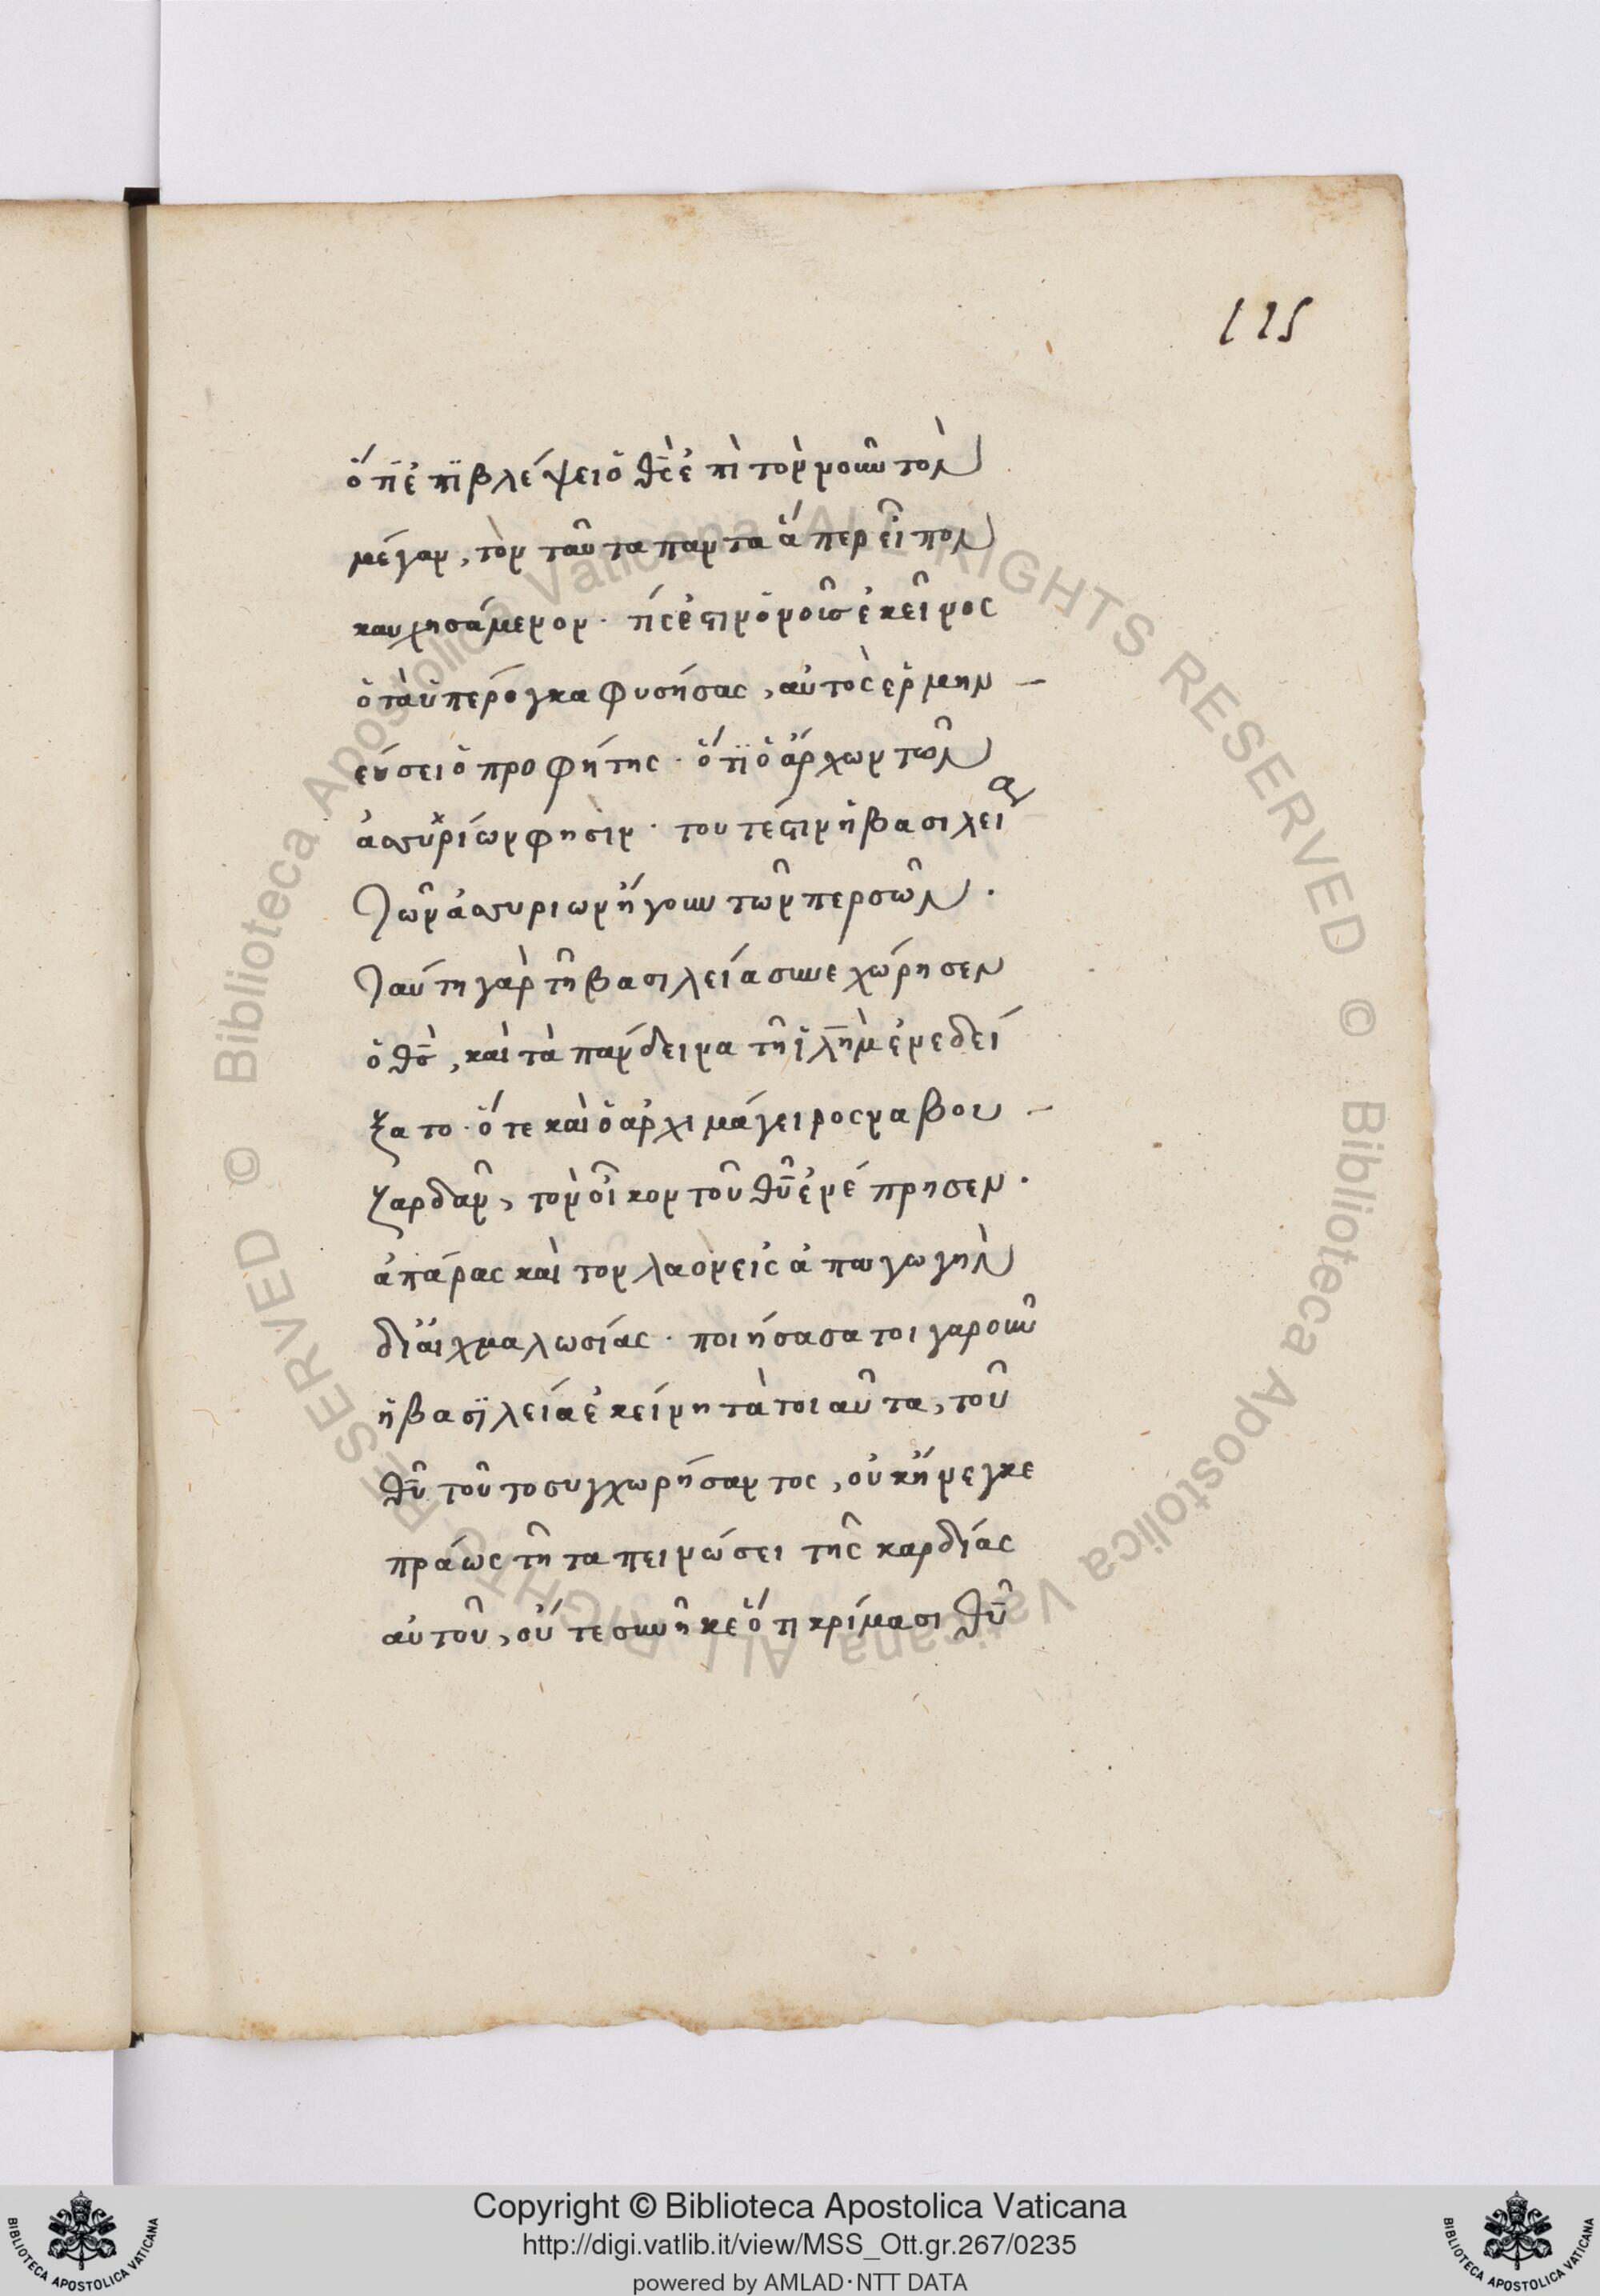 115
ὅτι ἐπιβλέψει ὁ θς ἐπὶ τὸν νοῦν τὸν
μέγαν, τὸν ταῦτα παντα ἅπερ εἶπον
καυχησάμενον. τίς ἐστιν ὁ νοῦς ἐκεῖνος
ὁ τὰ ὑπέρογκα φυσήσας, αὐτὸς ἑρμην-
εύσει ὁ προφήτης. ὅτι ὁ ἄρχων τῶν
ἀσσυρίων φησὶν. τουτέστιν ἡ βασιλεία
τῶν ἀσσυριων ἤγουν τῶν περσῶν.
Ταύτη γὰρ τῆ βασιλεία συνεχώρησεν
ὁ θς, καὶ τὰ πάνδεινα τῆ ἱλημ ἐνεδεί
ξατο. ὅτε καὶ ὁ ἀρχιμάγειρος ναβου-
ζαρδαν, τὸν οἶκον τοῦ θυ ἐνέπρησεν.
ἀπάρας καὶ τὸν λαὸν εἰς ἀπαγωγὴν
δι᾽ αἰχμαλωσίας. ποιήσασα τοιγαροῦν
ἡ βασιλεία ἐκείνη τὰ τοιαῦτα, τοῦ
θυ τοῦτο συγχωρήσαντος, οὐκ ἤνεγκε
πράως τῆ ταπεινώσει τῆς καρδίας
αὐτοῦ, οὔτε συνῆκε ὅτι κρίμασι θυ
Copyright © Biblioteca Apostolica Vaticana
http://digi.vatlib.it/view/MSS_Ott.gr.267/0235
powered by AMLAD·NTT DATA
BIBLIOTECA APOSTOLICA VATICANA
BIBLIOTECA APOSTOLICA VATICANA
© Biblioteca Apostolica Vaticana ALL RIGHTS RESERVED © Biblioteca Apostolica Vaticana ALL RIGHTS RESERVED